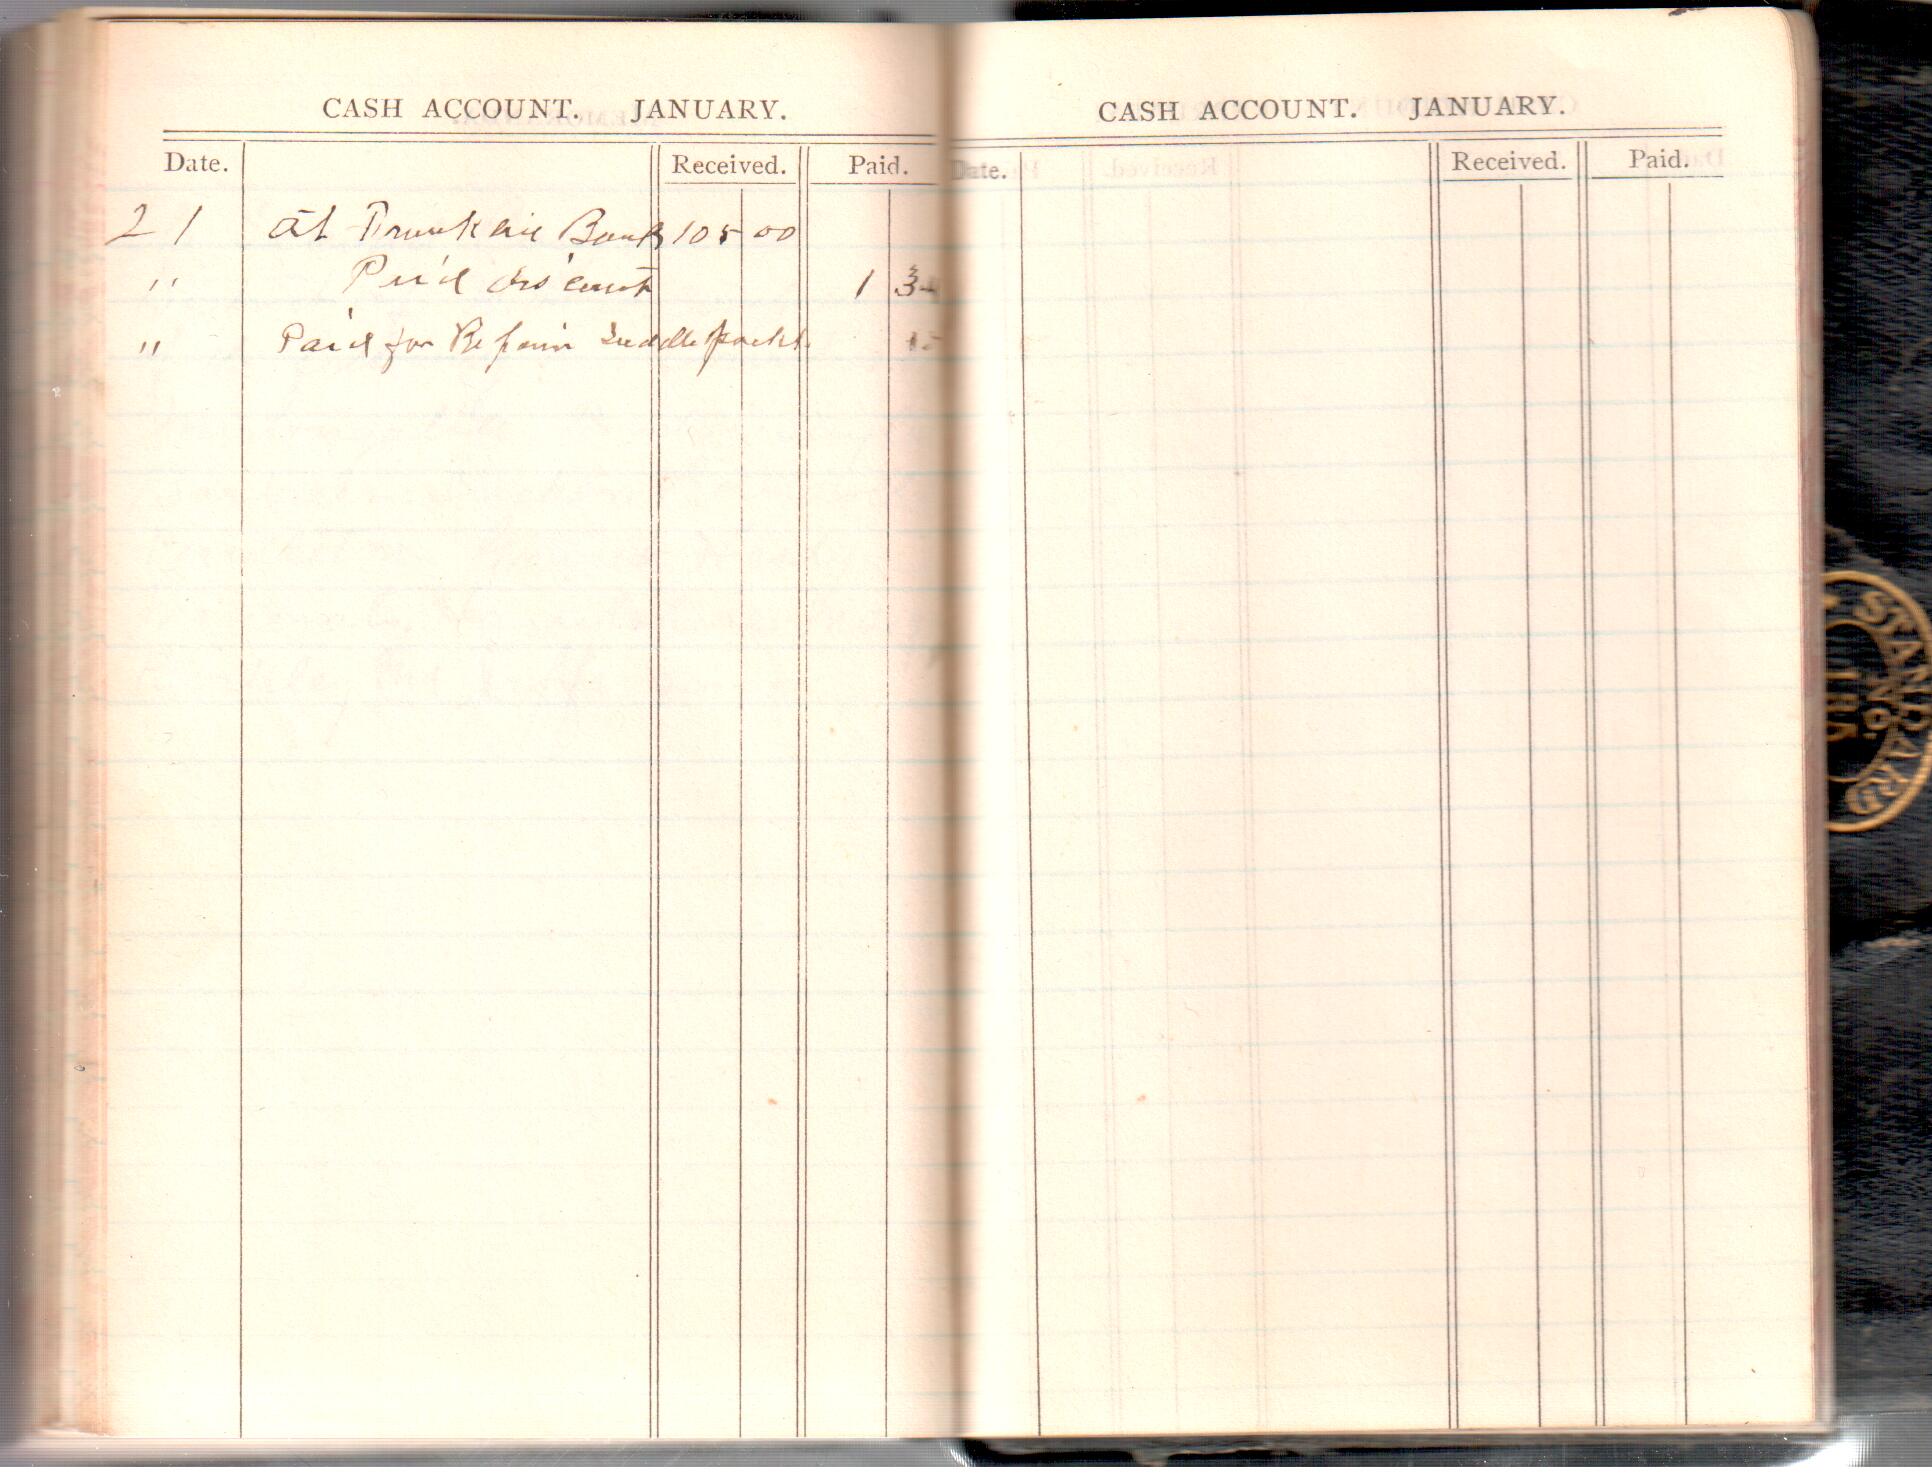 CASH ACCOUNT. JANUARY.
Date. Received. Paid.
21 At Bank 105 00
" Paid discount 1
" Paid for Repair 15
CASH ACCOUNT. JANUARY.
Date. Received. Paid.
STANDARD
NO.